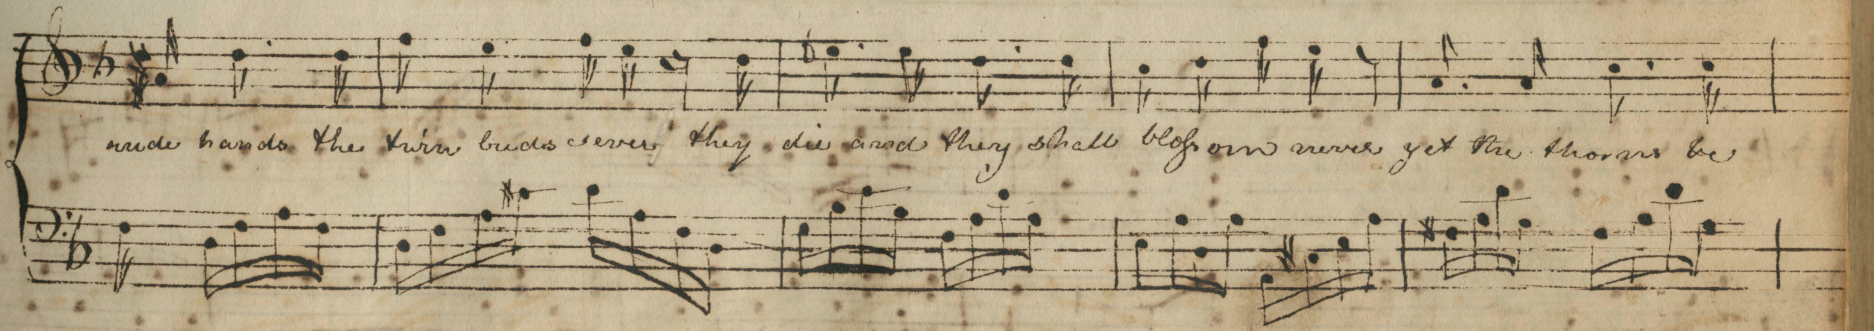 rude hands the twin buds sever they die and they shall bloſsom never yet the thorns be